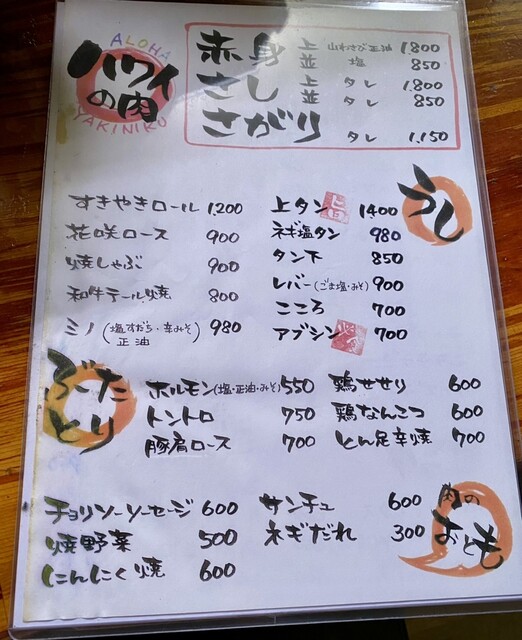 ALOHA
ハワイの肉
YAKINIKU
赤身 上 山わさび正油 1,800
並 塩 850
さし 上 タレ 1,800
並 タレ 850
さがり タレ 1,150
うし
すきやきロール 1,200
花咲ロース 900
焼しゃぶ 900
和牛テール焼 800
ミノ(塩すだち・辛みそ 正油) 980
上タン 1,400
ネギ塩タン 980
タン下 850
レバー(ごま塩・みそ) 900
こころ 700
アブシン 700
ぶーた
とり
ホルモン(塩・正油・みそ) 550
トントロ 750
豚肩ロース 700
鶏せせり 600
鶏なんこつ 600
とん足辛焼 700
チョリソーソーセージ 600
焼野菜 500
にんにく焼 600
サンチュ 600
ネギだれ 300
肉の
おとも